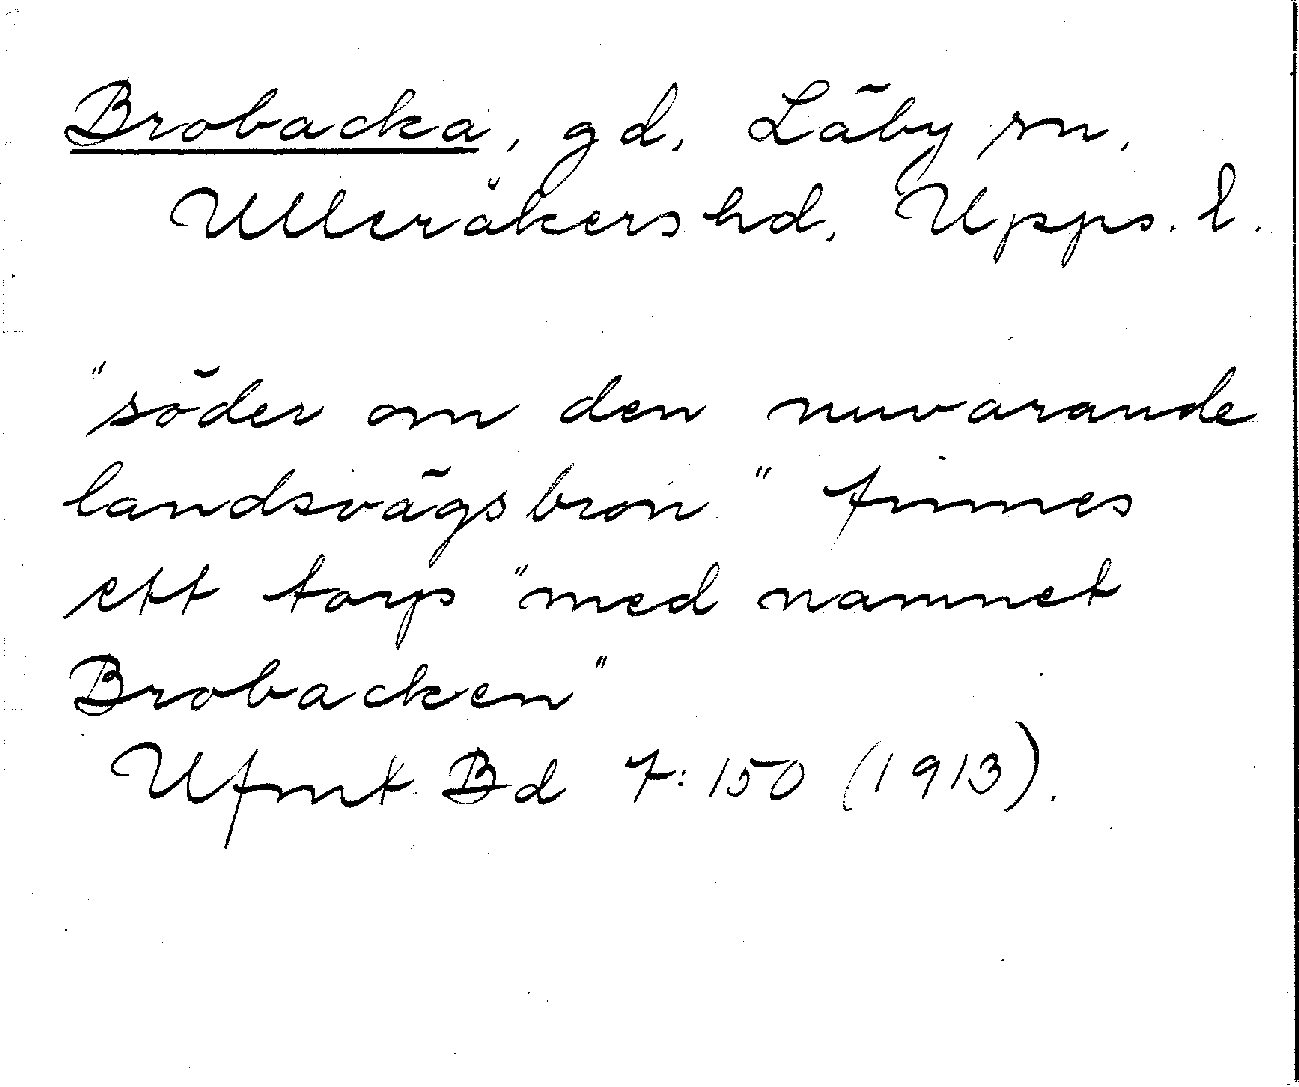 Brobacka, gd, Läby sn,
Ulleråkers hd, Upps. l.
"söder om den nuvarande
landsvägsbron" finnes
ett torp "med namnet
Brobacken"
Ufmt Bd 7:150 (1913).